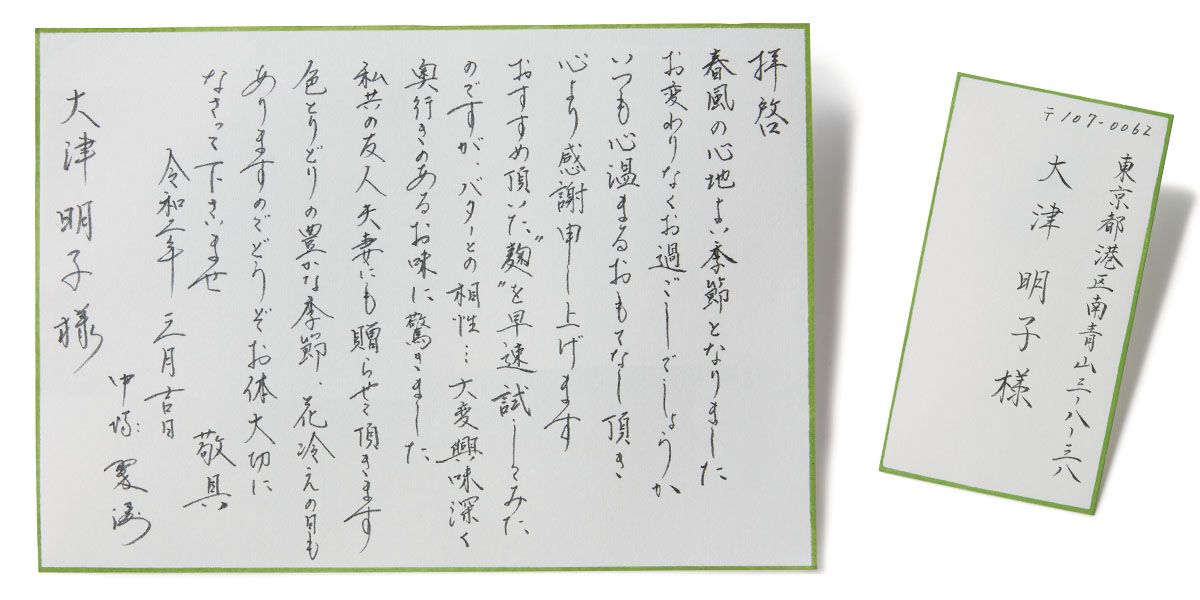 拝啓
春風の心地よい季節となりました
お変わりなくお過ごしでしょうか
いつも心温まるおもてなし頂き
心より感謝申し上げます
おすすめ頂いた〝麹〟を早速試してみた
のですが、バターとの相性…大変興味深く
奥行きのあるお味に驚きました
私共の友人夫妻にも贈らせて頂きます
色とりどりの豊かな季節、花冷えの日も
ありますのでどうぞお体大切に
なさって下さいませ
敬具
令和二年 三月吉日
中塚
大津明子様
〒107-0062
東京都港区南青山三ー八ー三八
大津 明子様